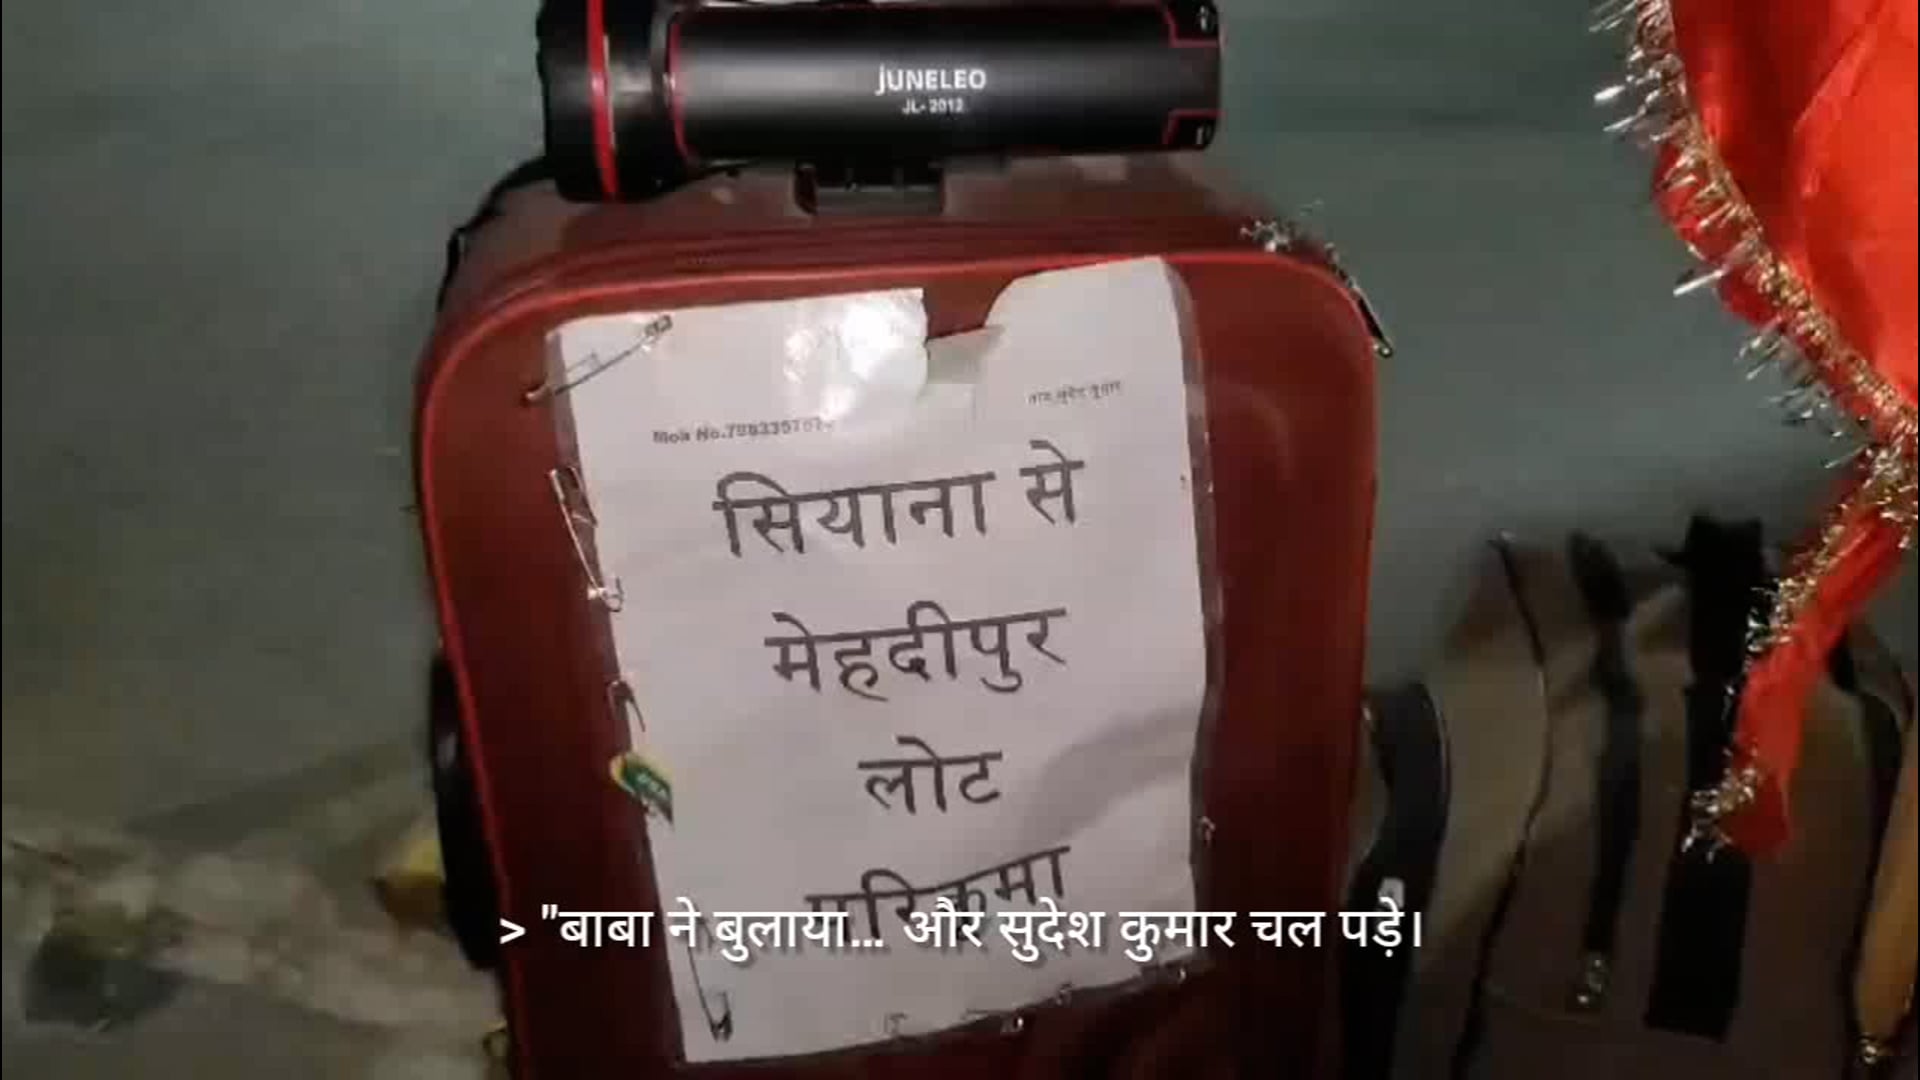 JUNELEO
JL- 2012
नाम सुदेश कुमार
Mob No.
सियाना से
मेहदीपुर
लोट
परिक्रमा
> "बाबा ने बुलाया... और सुदेश कुमार चल पड़े।